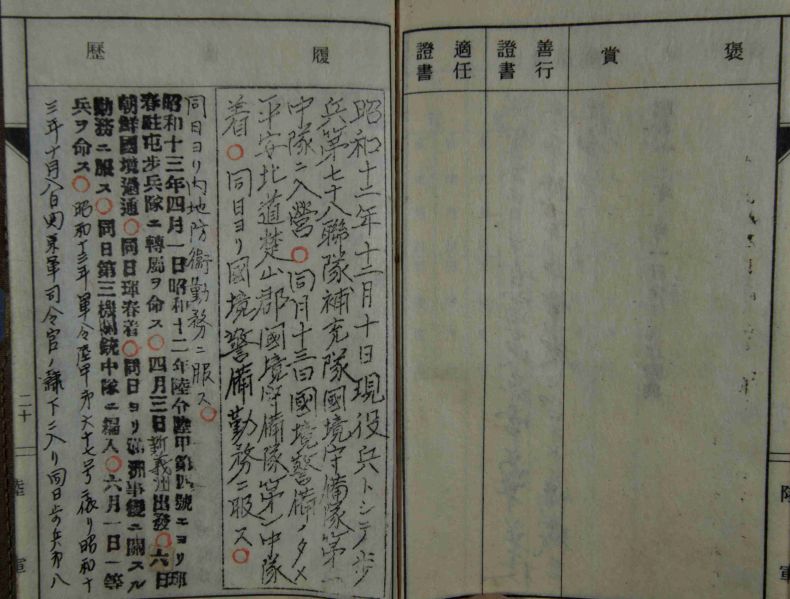 褒賞
善行證書
適任證書
陸軍
履歷
昭和十二年十二月十日現役兵トシテ歩
兵第七十八聯隊補充隊國境守備隊第一
中隊ニ入營○同月十三日國境警備ノタメ
平安北道楚山郡國境守備隊第一中隊
着○同日ヨリ國境警備勤務ニ服ス○
同日ヨリ內地防衞勤務ニ服ス○
昭和十三年四月一日昭和十二年陸令陸甲第四號ニヨリ琿
春駐屯步兵隊ニ轉屬ヲ命ス○四月三日新義州出發○六日
朝鮮國境通過○同日琿春着○同日ヨリ滿洲事變ニ關スル
勤務ニ服ス○同日第三機關銃中隊ニ編入○六月一日一等
兵ヲ命ス○昭和十三年軍令陸甲第六十七号ニ依リ昭和十
三年十月八日関東軍司令官ノ隷下ニ入リ同日歩兵第八
二十
陸軍